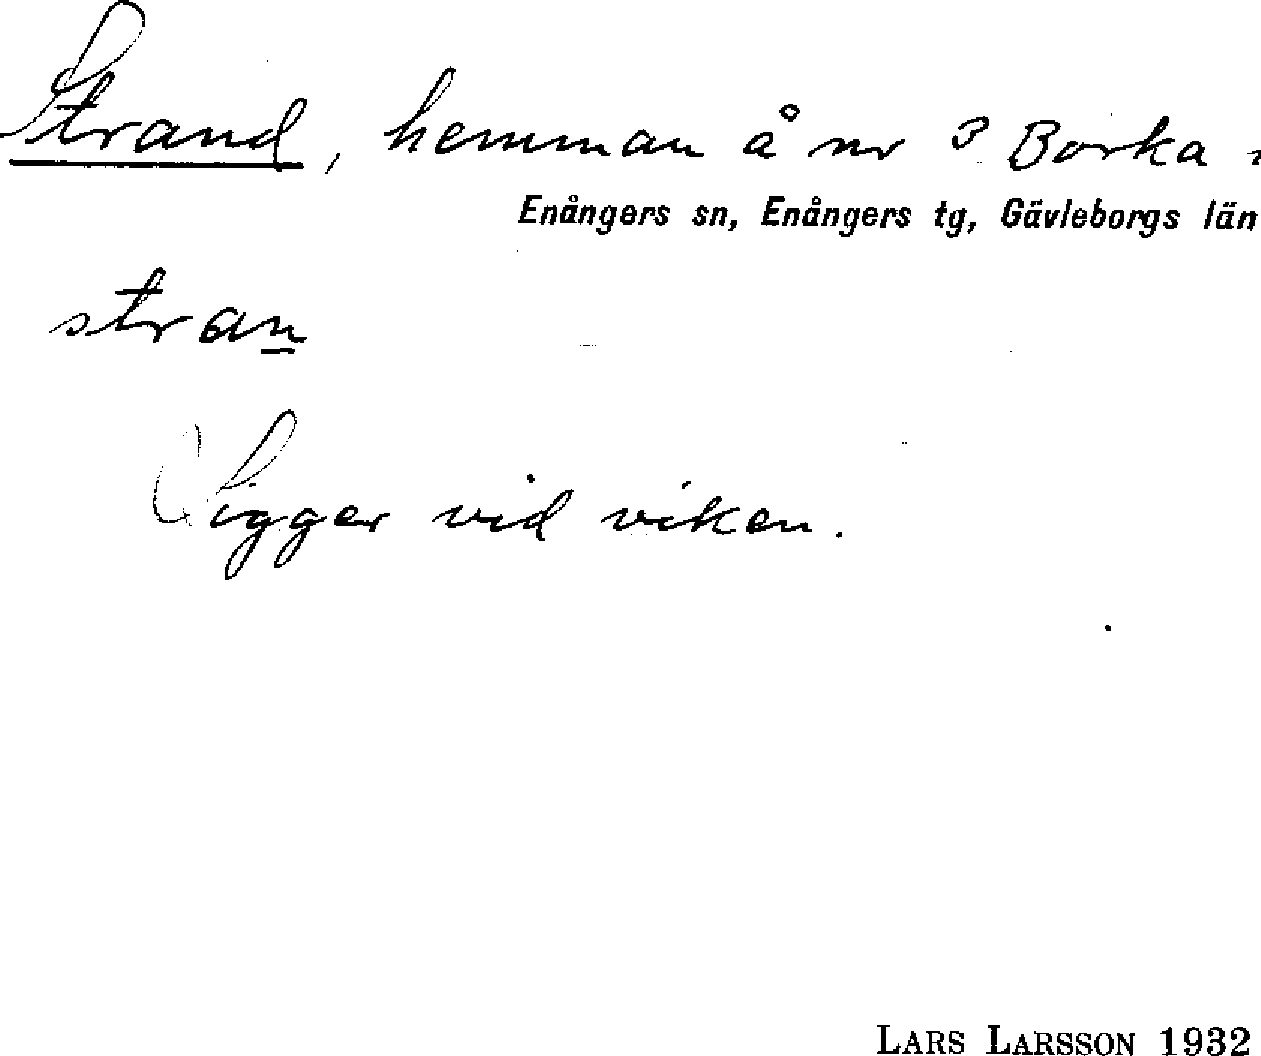 Strand, hemman å nr 3 Borka,
Enångers sn, Enångers tg, Gävleborgs län
stran
Ligger vid viken.
LARS LARSSON 1932